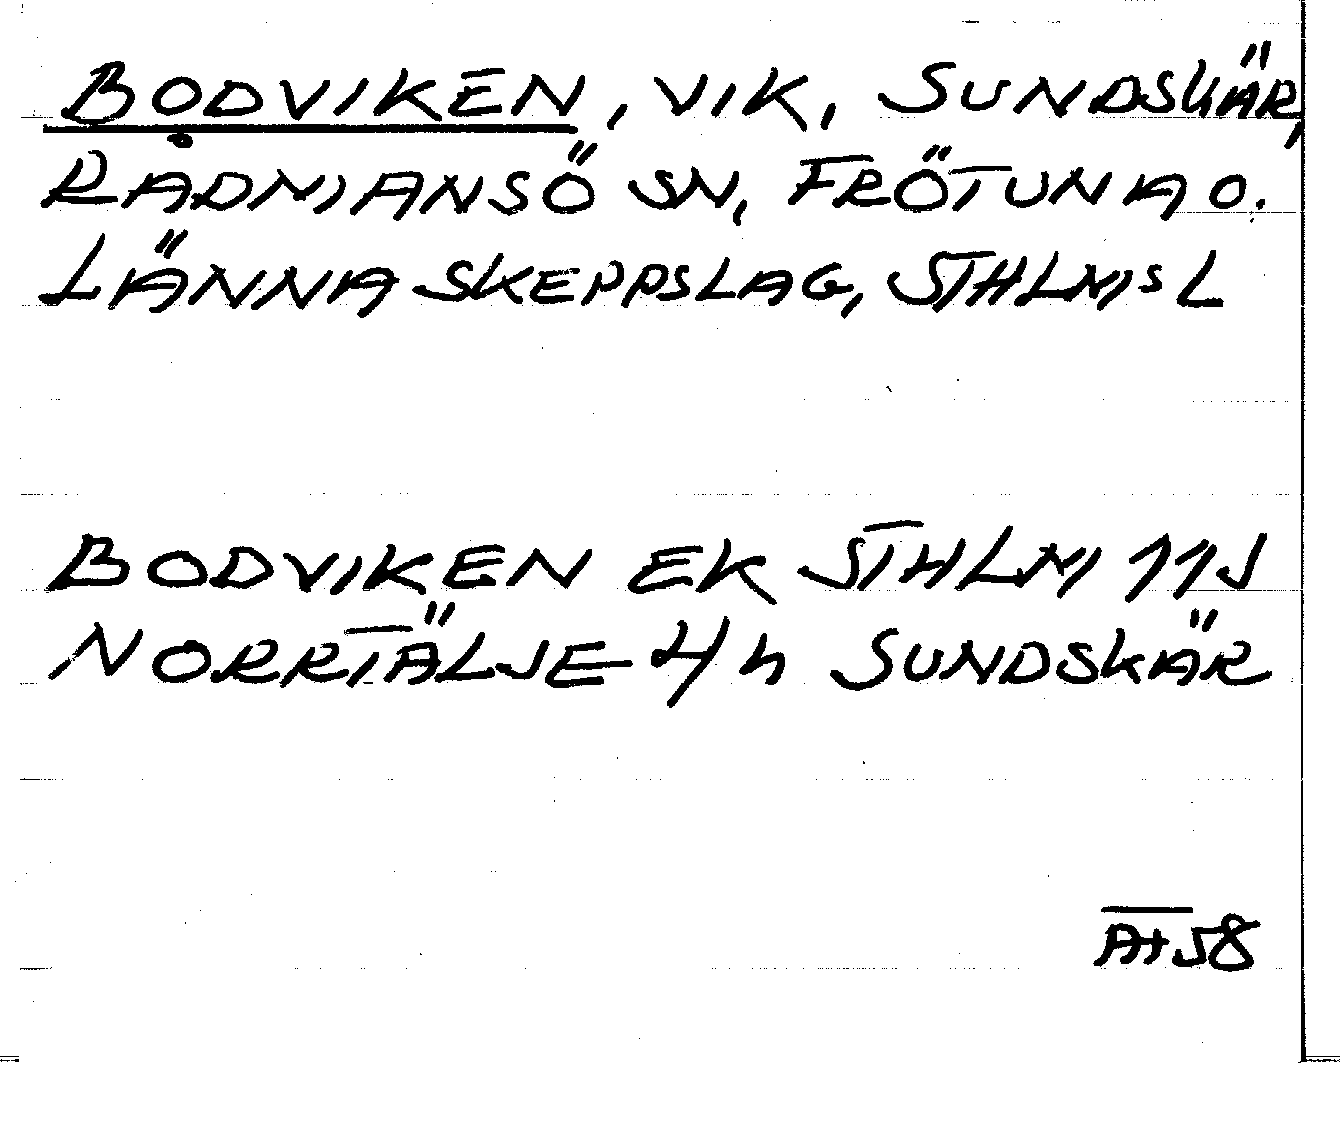 BODVIKEN, VIK, SUNDSKÄR,
RÅDMANSÖ SN, FRÖTUNA O.
LÄNNA SKEPPSLAG, STHLMS L
BODVIKEN EK STHLM 11J
NORRTÄLJE 4h SUNDSKÄR
At58